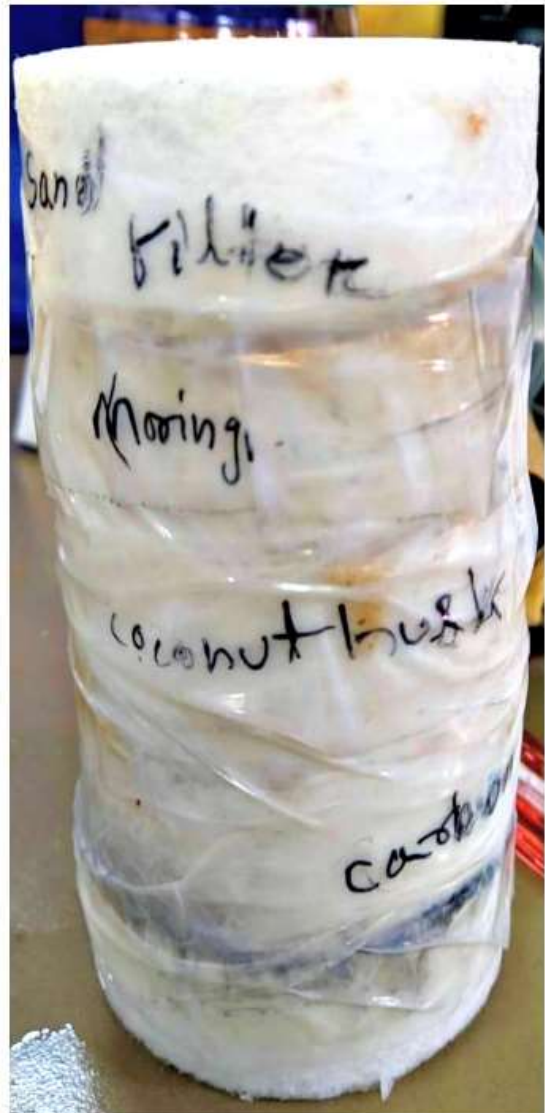 Sand
Filter
Moring
coconut husk
carbon